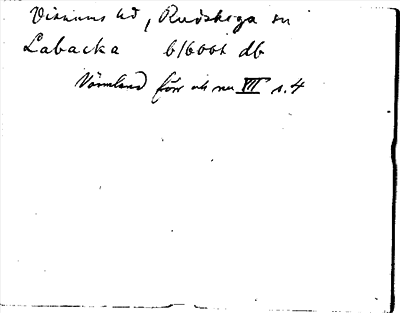 Visnums hd, Rudskoga sn
Labacka 6/6001 db
Värmland förr och nu VII s. 4